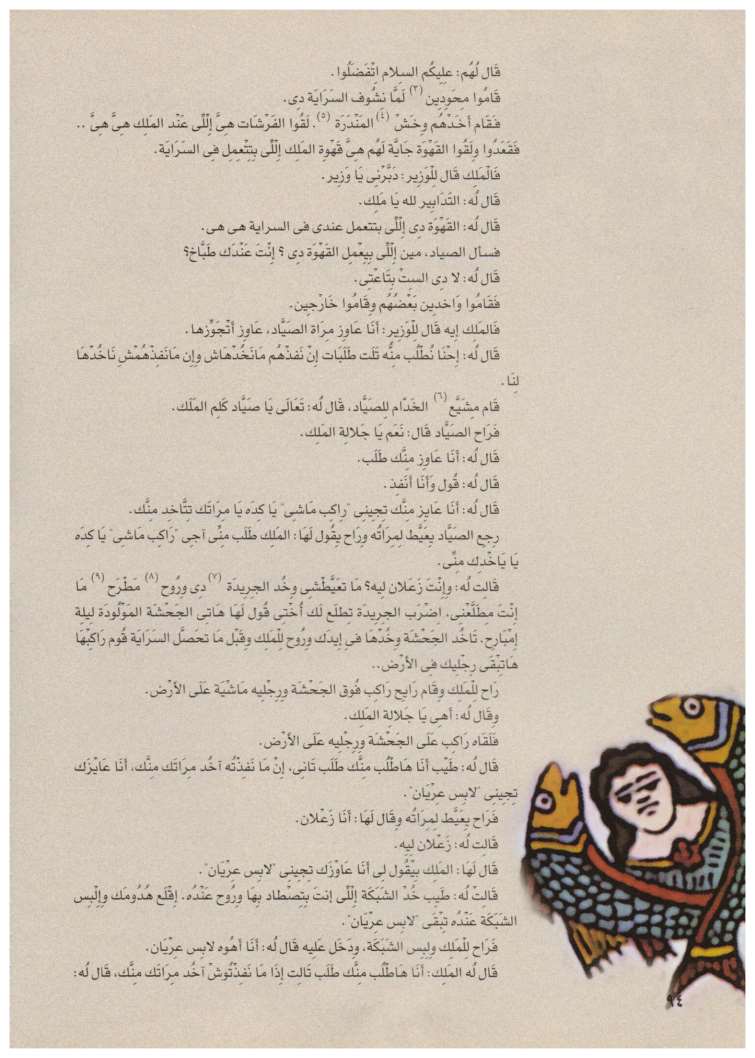 قَال لُهُم: عليكُم السلام اتْفَضَلُوا.
قَامُوا محَودِين (٣) لَمَّا نشُوف السَرَايَة دِى.
فقَام أخَدْهُم وخَشْ (٤) المَنْدَرَة (٥). لَقُوا الفَرْشَات هىَّ إِللِّى عَنْد المَلِك هىَّ هىَّ ..
فَقَعَدُوا ولَقُوا القَهْوَة جَايَّة لَهُم هىَّ قَهْوِة المَلِك إِللِّى بِتِتْعِمل فى السَرَايَة.
فَالْمَلِك قَال للْوَزِير: دَبَّرْنى يَا وَزِير.
قَال لُه: التَدَابِير لله يَا مَلِك.
قَال لُه: القَهْوَة دِى إِللِّى بتتعمل عندى فى السراية هى هى.
فسأل الصياد، مين إِللِّى بيِعْمِل القَهْوَة دِى؟ إِنْتَ عَنْدَك طَبَّاخ؟
قَال لُه: لا دِى الستْ بتَاعْتِى.
فَقَامُوا وَاخدِين بَعْضُهُم وقَامُوا خَارْجِين.
فَالمَلِك إيه قَال للْوَزِير: أنَا عَاوِز مرَاة الصَيَّاد، عَاوِز أتْجَوِّزها.
قَال لُه: إحْنَا نُطْلُب منُّه تَلَت طَلَبَات إنْ نَفذْهُم مَانَخُدْهَاش وإن مَانَفذْهُمْش نَاخُدْهَا
لنَا.
قَام مشَيَّع (٦) الخَدَّام للصَيَّاد، قَال لُه: تَعَالَى يَا صَيَّاد كَلِم المَلَك.
فَرَاح الصَيَّاد قَال: نَعَم يَا جَلالة المَلِك.
قَال لُه: أنَا عَاوِز منَّك طَلَب.
قَال لُه: قُول وَأنَا أنَفذ.
قَال لُه: أنَا عَايز منَّك تجينِى "رَاكب مَاشِى" يَا كِدَه يَا مرَاتَك تتَّاخد منَّك.
رجع الصَيَّاد يعَيَّط لمرَاتُه ورَاح يقُول لَهَا: المَلِك طَلَب منِّى آجى "رَاكب مَاشِى" يَا كدَه
يَا يَاخْدك منِّى.
قَالت لُه: وإنْتَ زَعَلان ليه؟ مَا تعَيَّطْشِى وخُد الجريدَة (٧) دِى ورُوح (٨) مَطْرَح (٩) مَا
إنْتَ مطَلَّعْنى، اضْرَب الجريدَة تطلَع لَك أُخْتى قُول لَهَا هَاتِى الجَحْشَة المَوْلُودَة ليلة
إمْبَارح. تَاخُد الجَحْشَة وخُدْهَا فى إيدَك ورُوح للْمَلك وقَبْل مَا تحَصَّل السَرَايَة قُوم رَاكبْهَا
هَاتبْقَى رجْليك فى الأرْض..
رَاح للْمَلك وقَام رَايح رَاكب فُوق الجَحْشَة ورجْليه مَاشْيَة عَلَى الأرْض.
وقَال لُه: أهى يَا جَلالة المَلك.
فَلَقَاه رَاكب عَلَى الجَحْشَة ورجْليه عَلَى الأرْض.
قَال لُه: طَيّب أنَا هَاطْلُب منَّك طَلَب تَانى، إنْ مَا نَفذْتُه آخُد مرَاتَك منَّك، أنَا عَايْزَك
تجينى "لابس عرْيَان".
فَرَاح يعَيَّط لمرَاتُه وقَال لَهَا: أنَا زَعْلان.
قَالت لُه: زَعْلان ليه.
قَال لَهَا: المَلك بيْقُول لى أنَا عَاوْزَك تجينى "لابس عرْيَان".
قَالتْ لُه: طَيب خُدْ الشبَكَة إللِّى إنتَ بتصْطاد بهَا ورُوح عَنْدُه. إقْلَع هُدُومَك وإلْبس
الشبَكَة عَنْدُه تبْقَى "لابس عرْيَان".
فَرَاح للْمَلك ولبس الشبَكَة، ودَخَل عَليه قَال لُه: أنَا أهُوه لابس عرْيَان.
قَال لُه المَلك: أنَا هَاطْلُب منَّك طَلَب تَالت إذَا مَا نَفذْتُوش آخُد مرَاتَك منَّك، قَال لُه:
٩٤